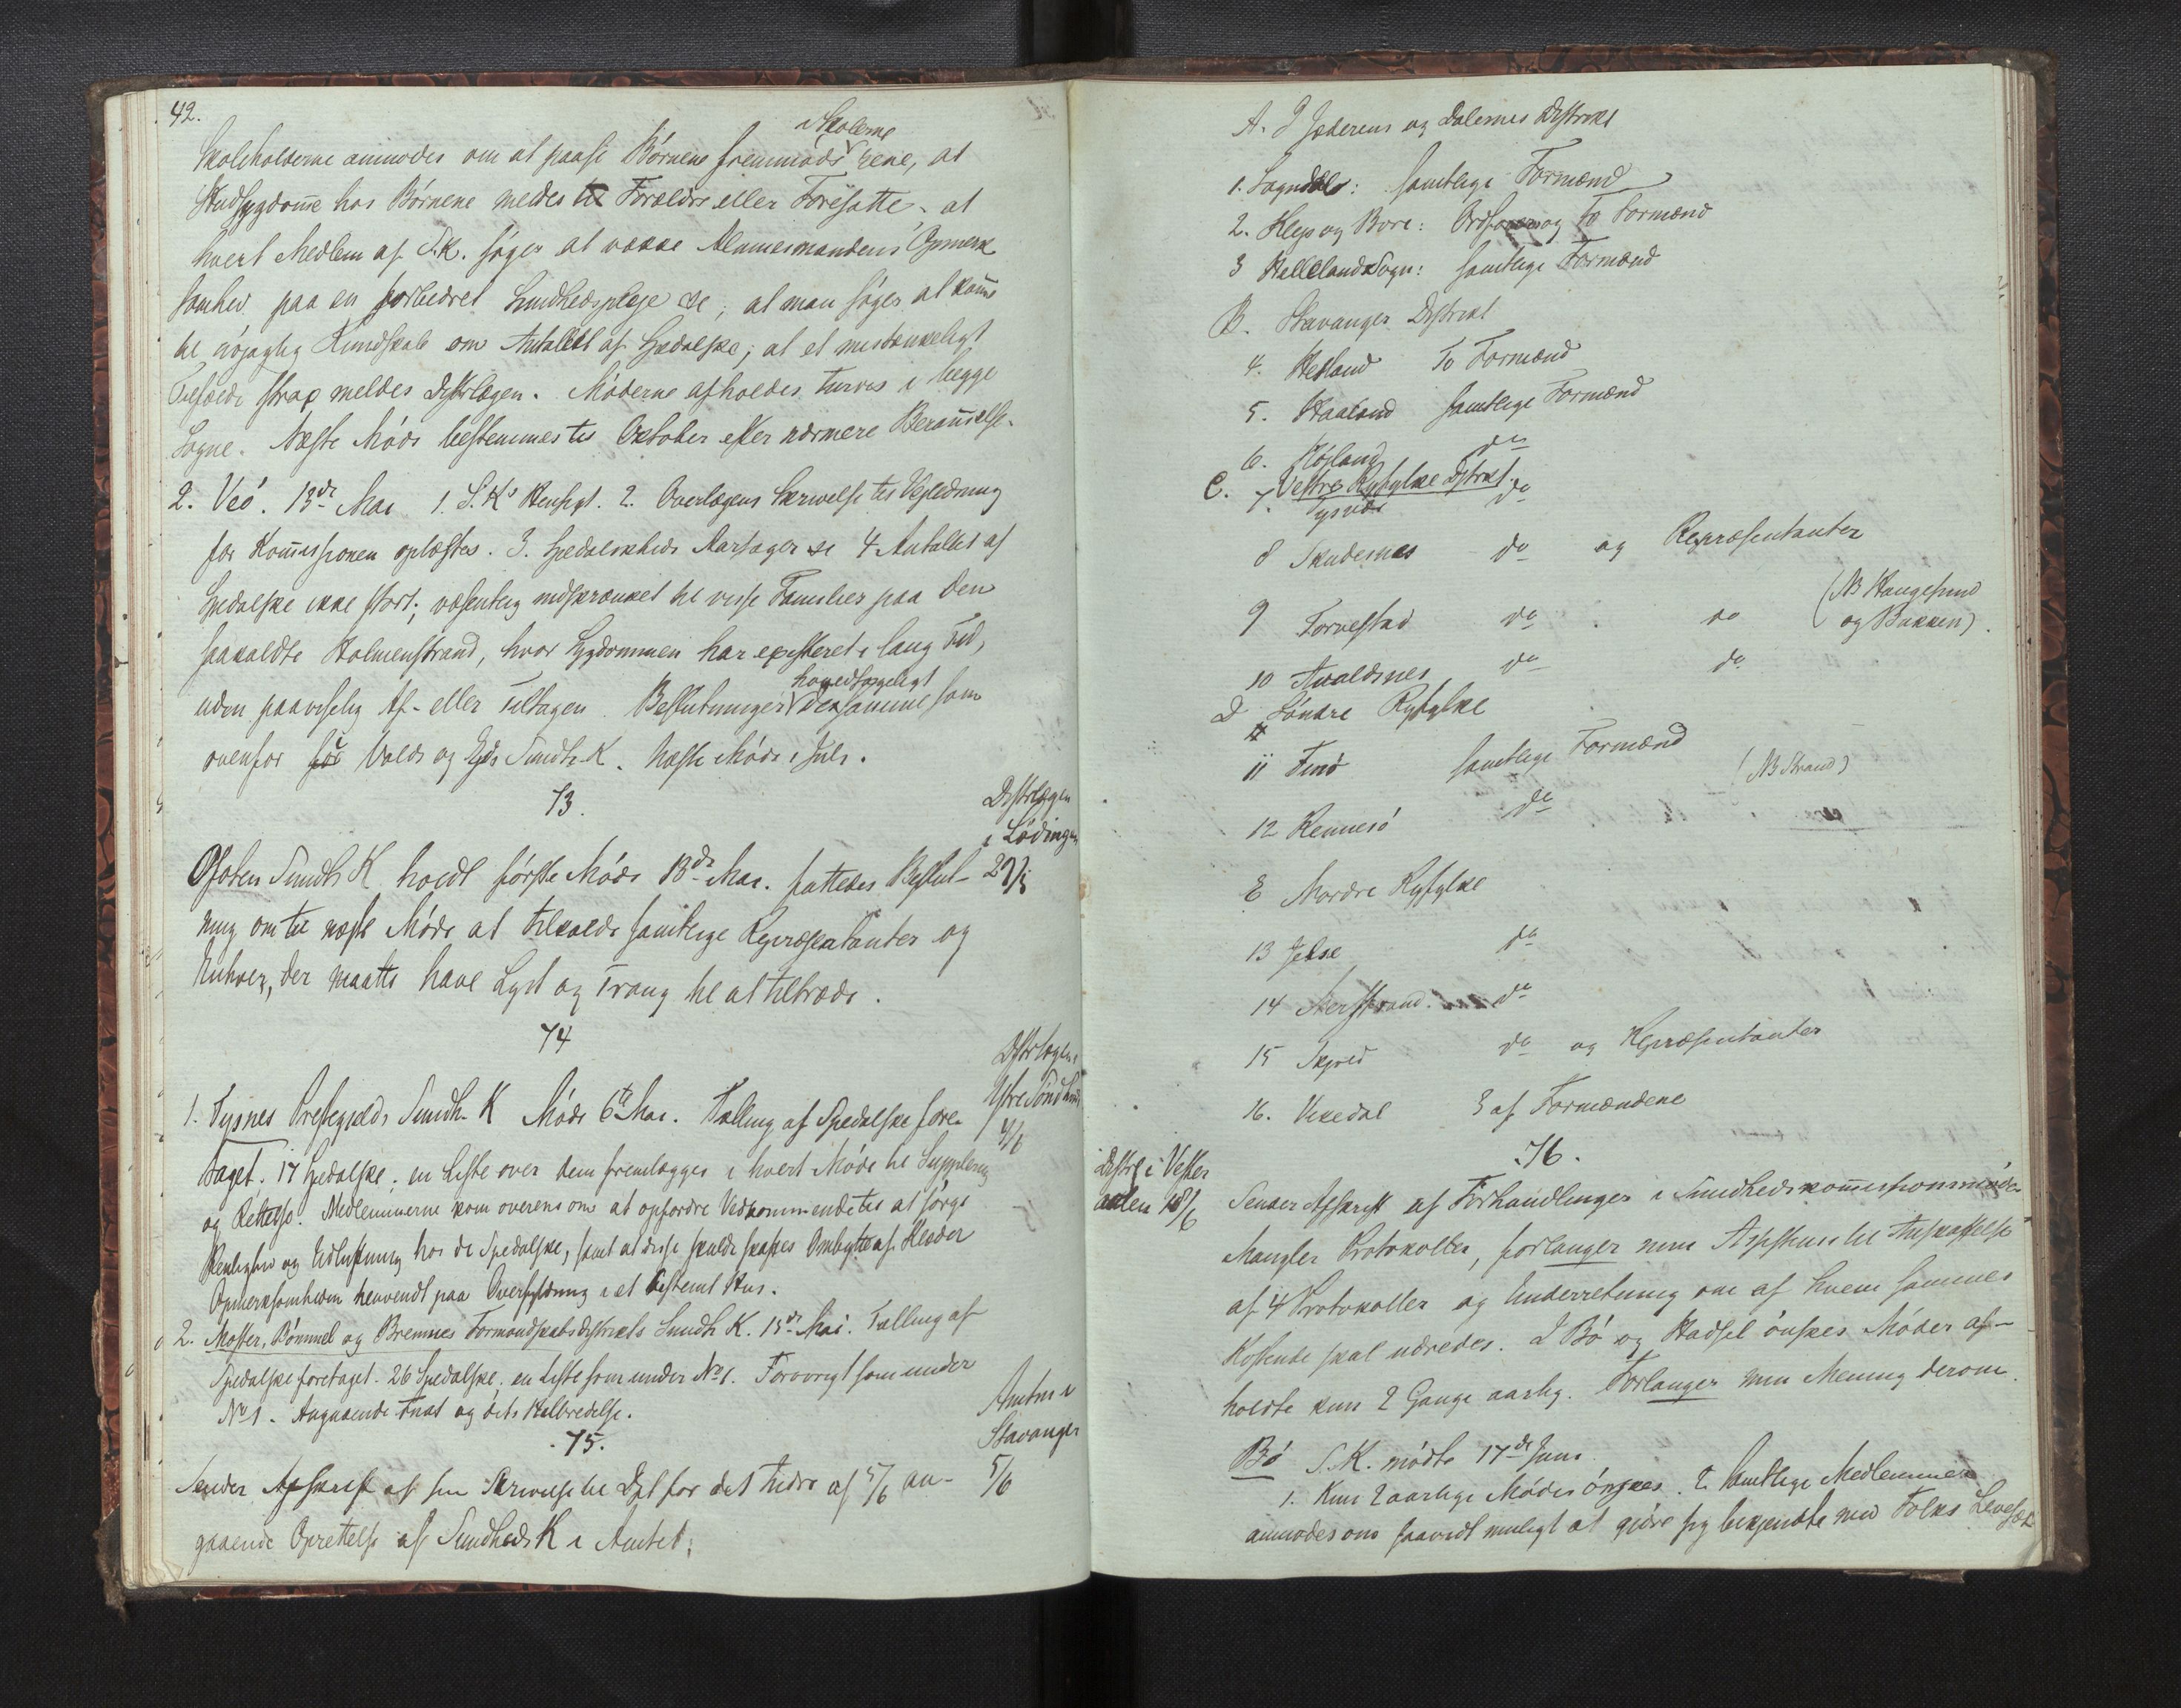 42.
i Skolerne
Skoleholderne anmodes om at paase Børnene fremmøde rene, at
Hudsygdom̅e hos Børnene meldes til Forældre eller Foresatte, at
hvert Medlem af S.K. søger at vække Almuesmandens Opmerk
somhed paa en forbedret Sundhedspleje &c; at man søger at kom̅e
til nøjagtig Kundskab om Antallet af Spedalske; at et mistænkeligt
Tilfælde strax meldes Distrlægen. Møderne afholdes turvis i begge
Sogne. Næste Møde bestemmes til Oktober efter nærmere Beram̅else.
2. Veø. 13de Mai 1. S.Ks Hensigt. 2. Overlægens Skrivelse til Vejledning
for Kom̅issionen oplæstes. 3. Spedalskheds Aarsager &c 4 Antallet af
Spedalske ikke stort; væsentlig indskrænket til visse Familier paa den
saakaldte Holmenstrand, hvor Sygdommen har existeret i lang Tid,
uden paaviselig Af- eller Tiltagen. Beslutninger hovedsageligt densamme som
ovenfor for Volds og Eids Sundh. K. Næste Møde i Juli.
73.
Distrlægen
i Lødingen
29/5
Ofoten Sundh K holdt første Møde 13de Mai. fattedes Beslut-
ning om til næste Møde at tilkalde samtlige Repræsentanter og
Enhver, der maatte have Lyst og Trang til at tiltræde.
74
Distrlægen i
Ytre Søndhord
4/6
1. Tysnes Præstegjelds Sundh. K Møde 6te Mai. Tælling af Spedalske fore-
taget. 17 Spedalske; en Liste over dem fremlægges i hvert Møde til Supplering
og Rettelse. Medlemmerne kom overens om at opfordre Vedkommende til at sørge
Renlighed og Udluftning hos de Spedalske, samt at disse skulde skaffes Ombytte af Klæder
Opmerksomheden henvendt paa Overfyldning i et bestemt Hus.
2. Moster, Bømmel og Bremnes Formandskabsdistrikts Sundh K. 13de Mai. Tælling af
Spedalske foretaget. 26 Spedalske. en Liste som under No 1. Forøvrigt som under
No 1. Angaaende Fnat og dets Helbredelse.
75.
Amtm i
Stavanger
5/6
Sender Afskrift af sin Skrivelse til Dpt for det Indre af 5/6 an-
gaaende Oprettelse af Sundheds K i Amtet.
A. I Jæderens og Dalernes Distrikt
1. Sogndal: samtlige Formænd
2. Klep og Bore: Ordfører og to Formænd
3 Helleland Sogn: samtlige Formænd
B. Stavanger Distrikt
4. Hetland To Formænd
5. Haaland samtlige Formænd
6. Højland do
C. Vestre Ryfylke Distrikt.
7. do
8 Skudesnes do og Repræsentanter
9 Torvestad do do (NB Haugesund
og Bukken).
10 Avaldsnes do do
D Søndre Ryfylke
11 Finø samtlige Formænd
(NB Strand)
12 Rennesø do
E Nordre Ryfylke
13 Jelse do
14 Nerstrand do
15 Skjold do og Repræsentanter
16. Vikedal 3 af Formændene
76.
Distrl i Vester
aalen 18/6
Sender Afskrift af Forhandlinger i Sundhedskom̅issionsmøder
Mangler Protokoller, forlanger min Assistence til Anskaffelse
af 4 Protokoller og Underretning om af hvem sammes
Kostende skal udredes. I Bø og Hadsel ønskes Møder af-
holdte kun 2 Gange aarlig. Forlanger min Mening derom.
Bø S.K. mødte 17de Juni
1. Kun 2 aarlige Møder ønskes. 2. Samtlige Medlemmer
anmodes om saavidt muligt at gjøre sig bekjendte med Folks Levesæt